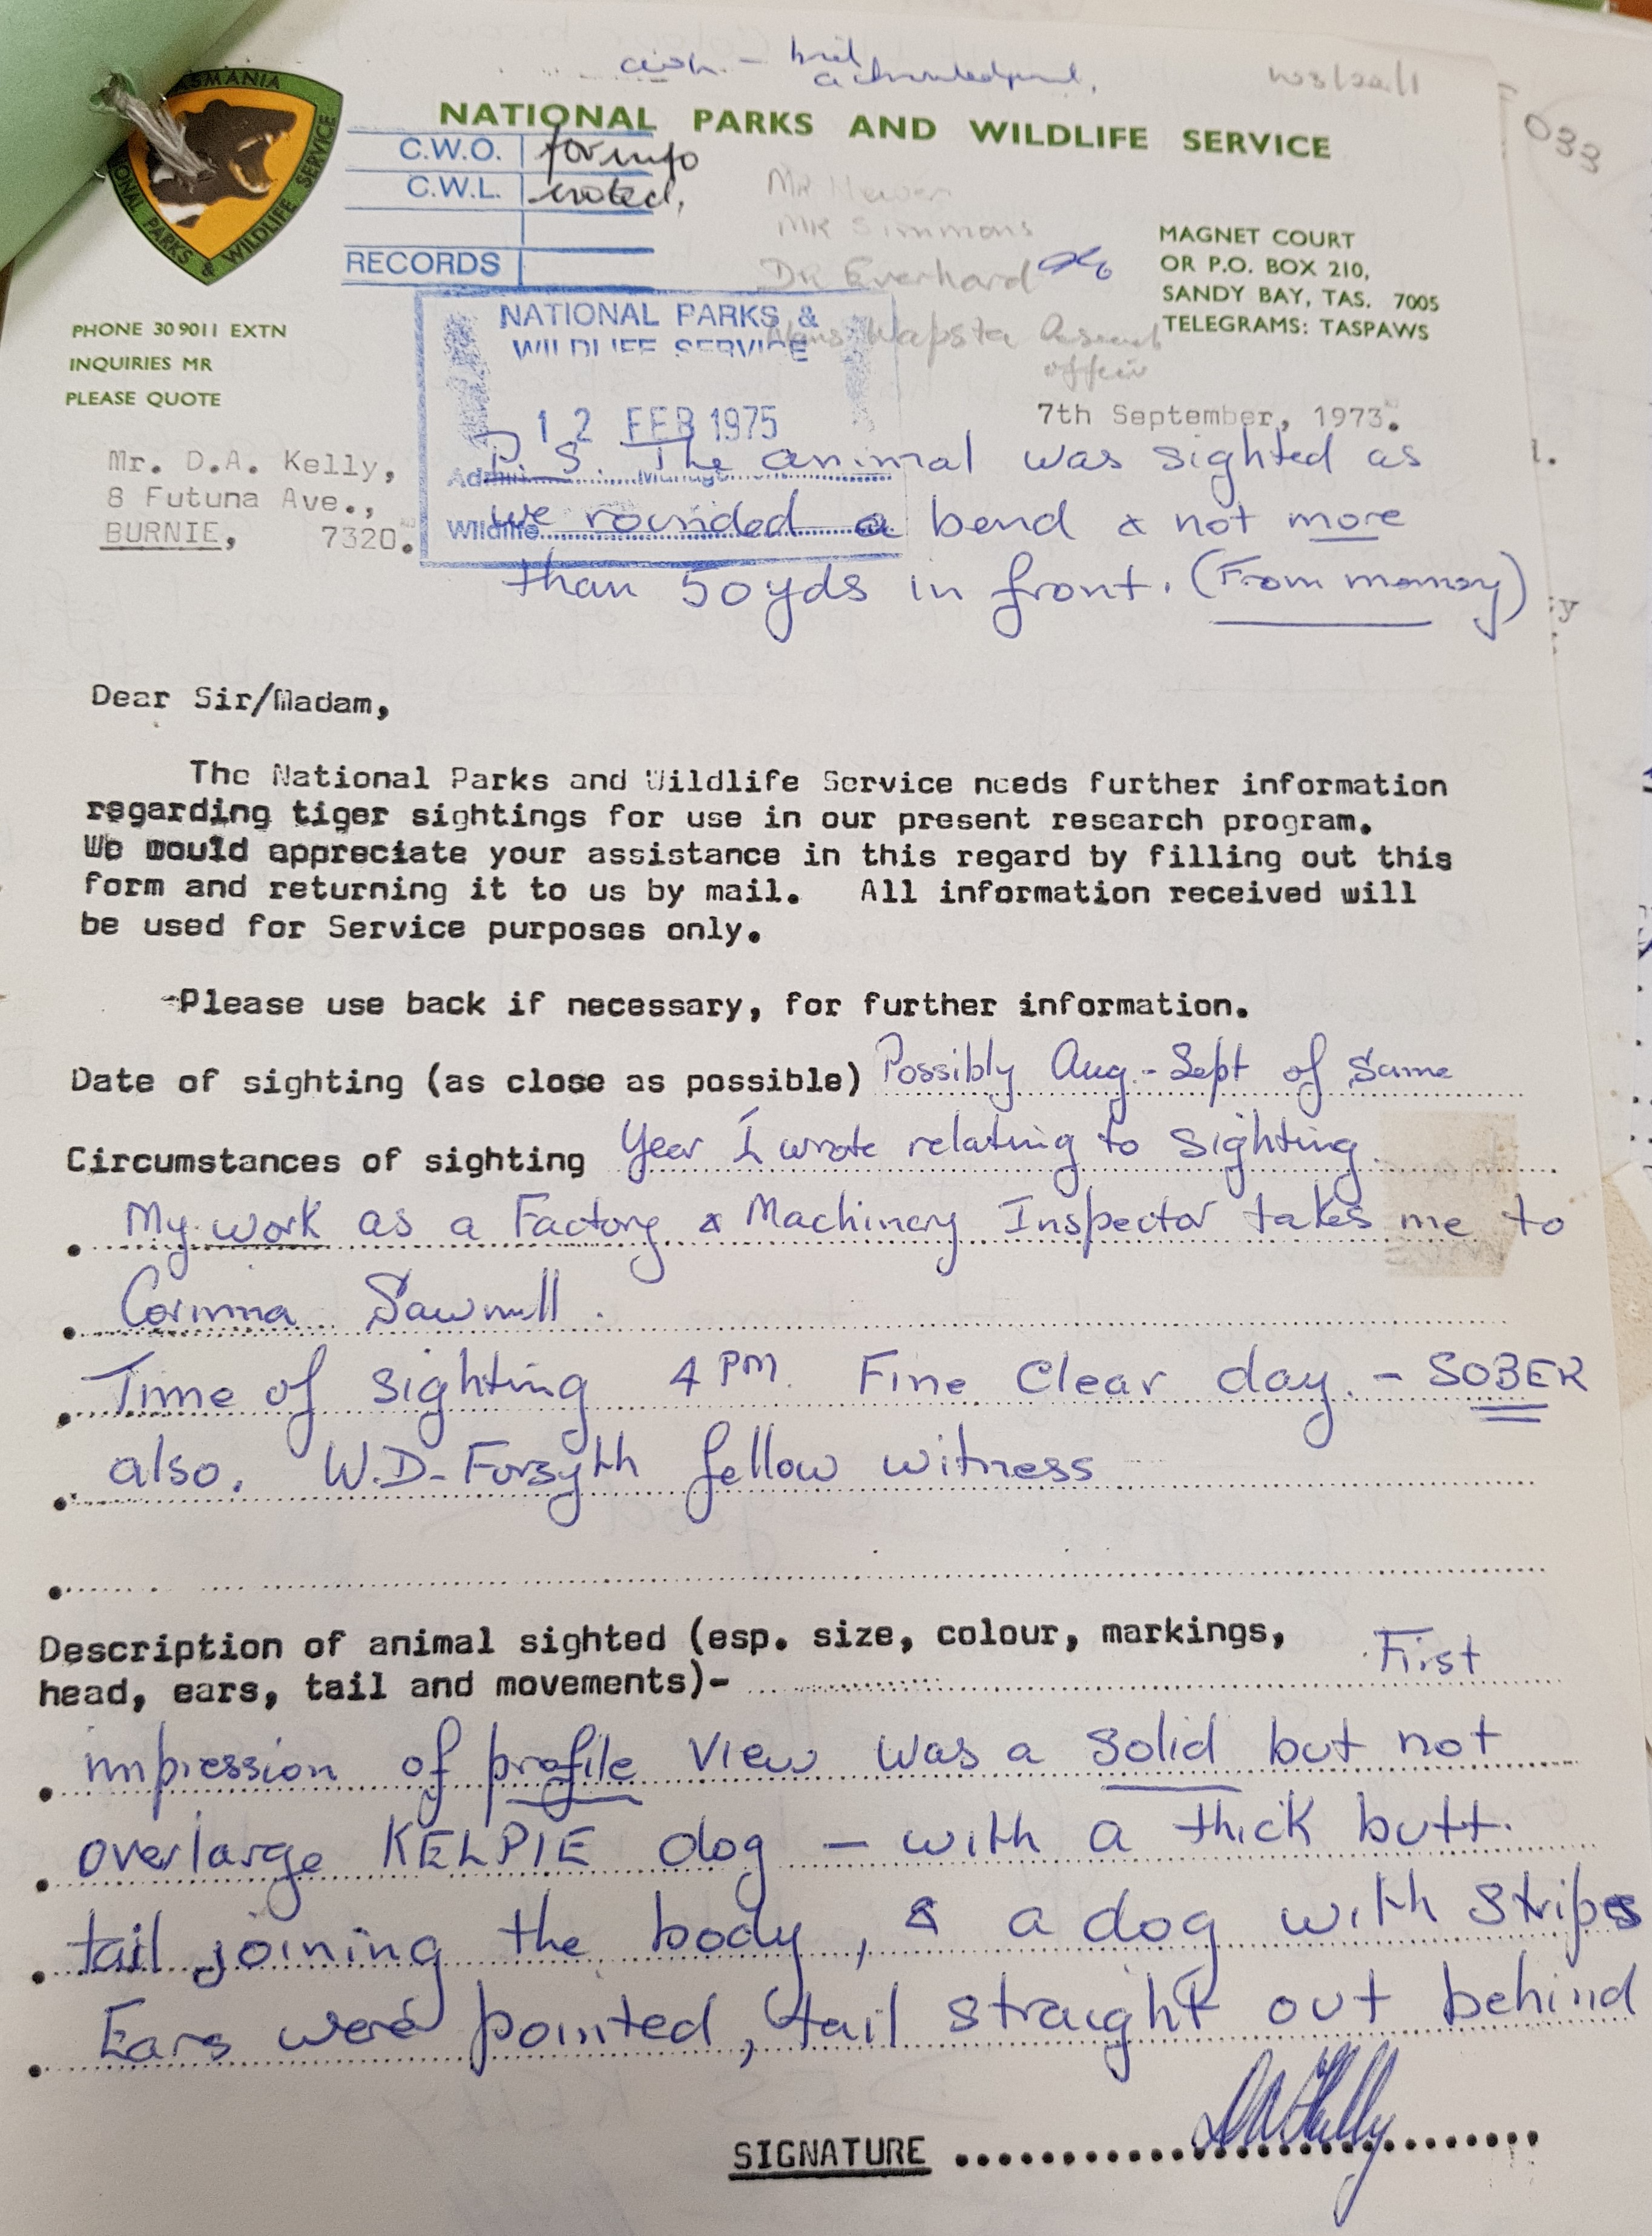 TASMANIA
NATIONAL PARKS & WILDLIFE SERVICE
acknowledgment,
NATIONAL PARKS AND WILDLIFE SERVICE
033
C.W.O. for info
C.W.L. noted,
RECORDS
Mr Simmons
Dr Everhard
MAGNET COURT
OR P.O. BOX 210,
SANDY BAY, TAS. 7005
TELEGRAMS: TASPAWS
PHONE 30 9011 EXTN
INQUIRIES MR
PLEASE QUOTE
NATIONAL PARKS &
WILDLIFE SERVICE
Wapsta Research
officer
12 FEB 1975
7th September, 1973.
Mr. D.A. Kelly,
8 Futuna Ave.,
BURNIE, 7320.
Wildlife
P.S. The animal was sighted as
we rounded a bend & not more
than 50 yds in front. (From memory)
Dear Sir/Madam,
The National Parks and Wildlife Service needs further information
regarding tiger sightings for use in our present research program.
We would appreciate your assistance in this regard by filling out this
form and returning it to us by mail. All information received will
be used for Service purposes only.
-Please use back if necessary, for further information.
Date of sighting (as close as possible) Possibly Aug.-Sept of Same
Circumstances of sighting Year I wrote relating to Sighting.
My work as a Factory & Machinery Inspector takes me to
Corinna Sawmill.
Time of sighting 4 PM. Fine Clear day. - SOBER
also. W.D-Forsyth fellow witness
Description of animal sighted (esp. size, colour, markings,
head, ears, tail and movements)- First
impression of profile view was a solid but not
overlarge KELPIE dog - with a thick butt.
tail joining the body, & a dog with stripes
Ears were pointed, tail straight out behind
SIGNATURE DA Kelly